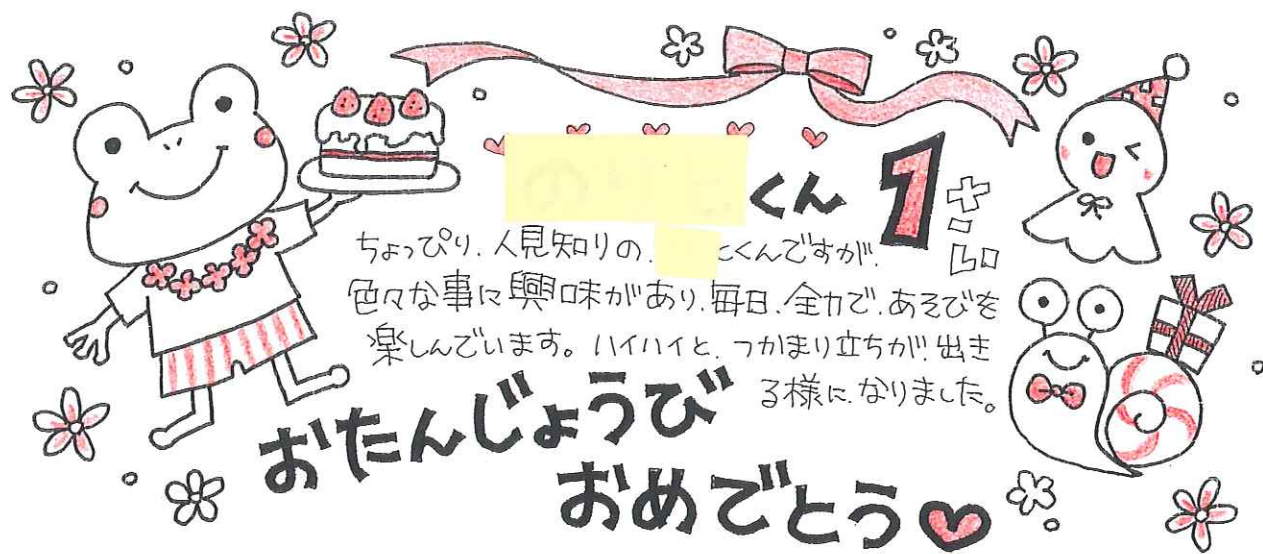 くん 1さい
ちょっぴり、人見知りの、とくんですが、
色々な事に興味があり、毎日、全力で、あそびを
楽しんでいます。ハイハイと、つかまり立ちが、出き
る様に、なりました。
おたんじょうび
おめでとう